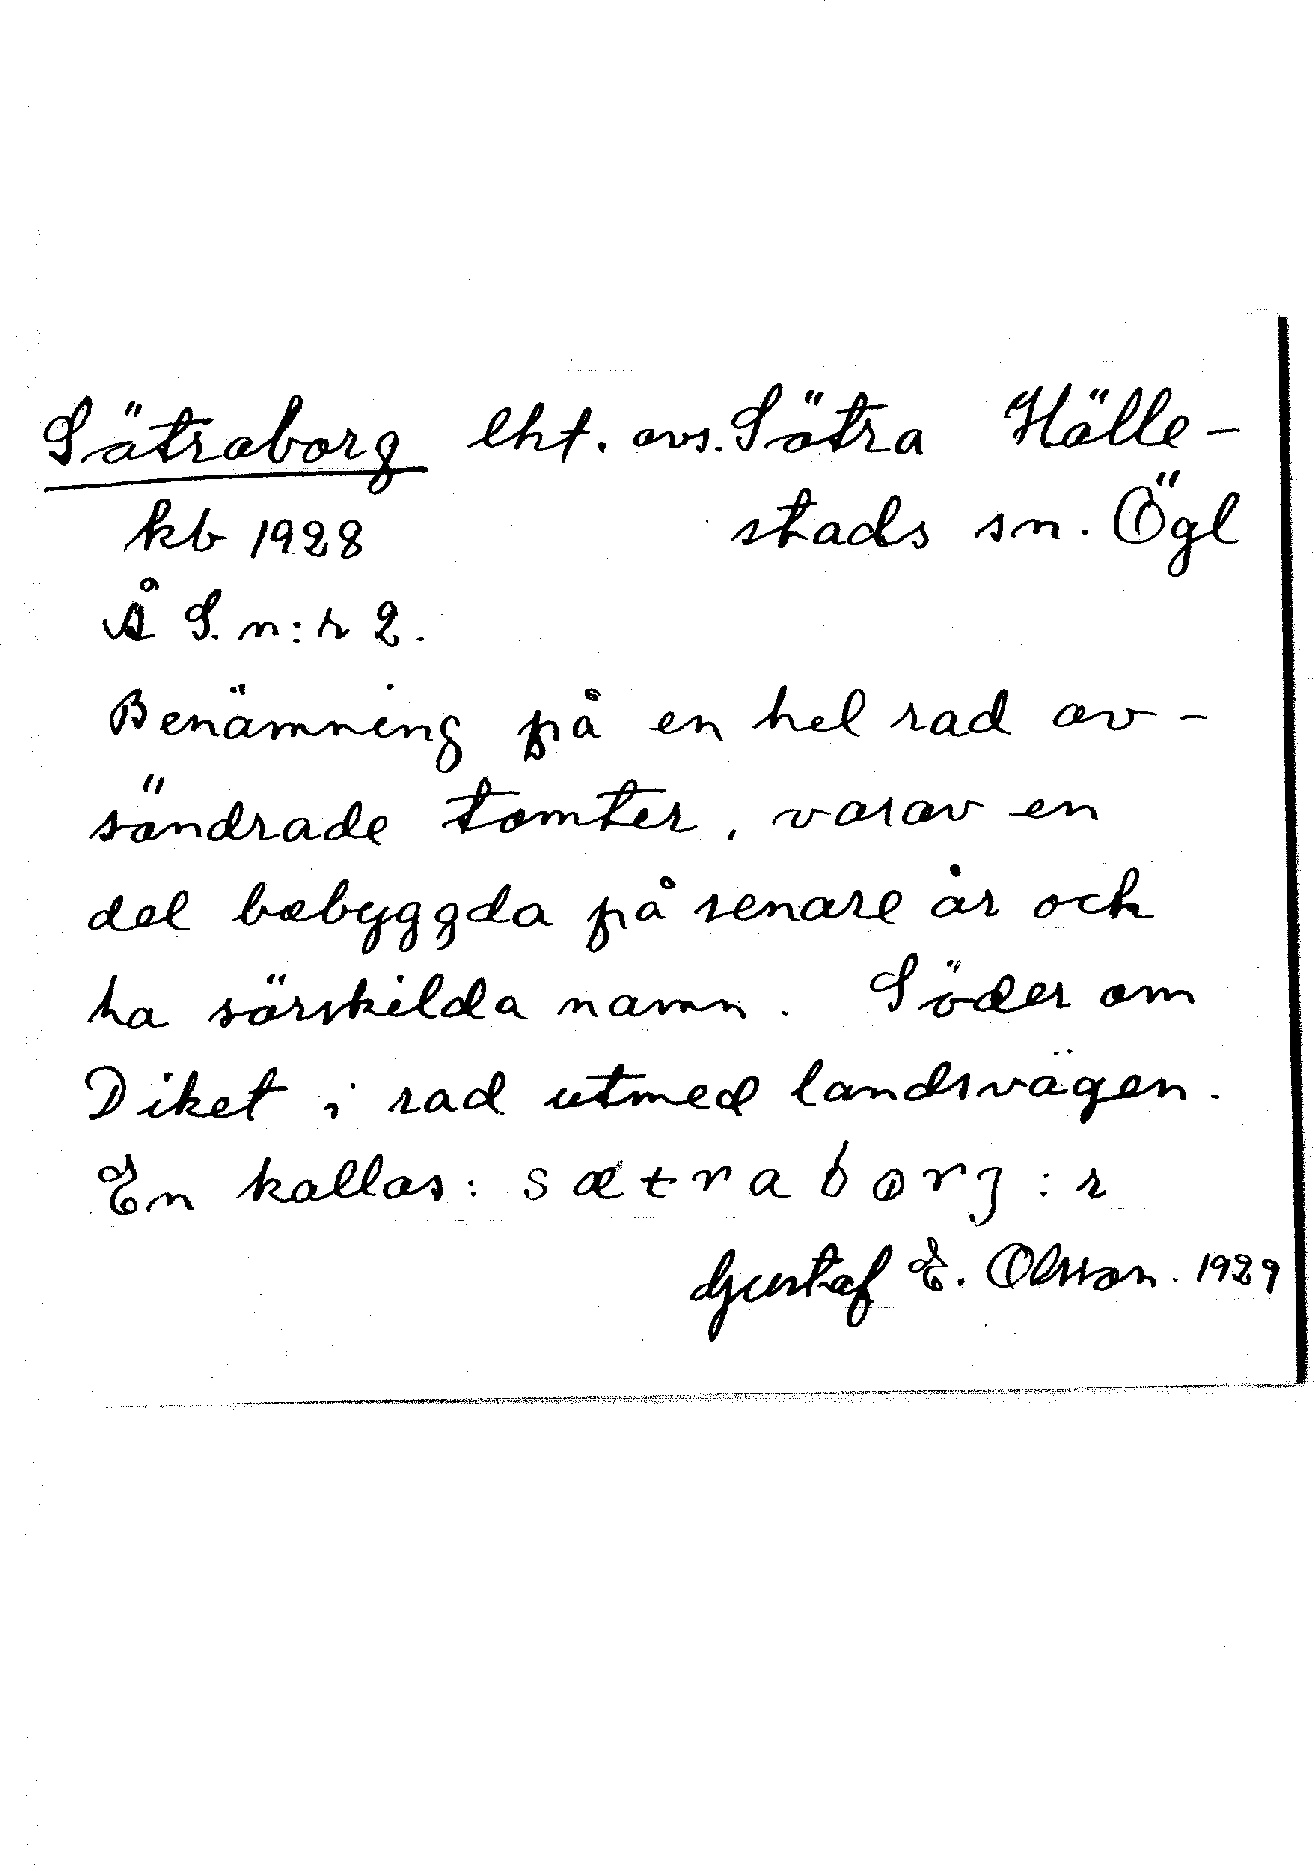 Sätraborg lht. avs. Sätra Hälle-
kb 1928 stads sn. Ögl
Å S. n:r 2.
Benämning på en hel rad av-
söndrade tomter, varav en
del bebyggda på senare år och
ha särskilda namn. Söder om
Diket i rad utmed landsvägen.
En kallas: sætraborȝ:r
Gustaf E. Olsson. 1929